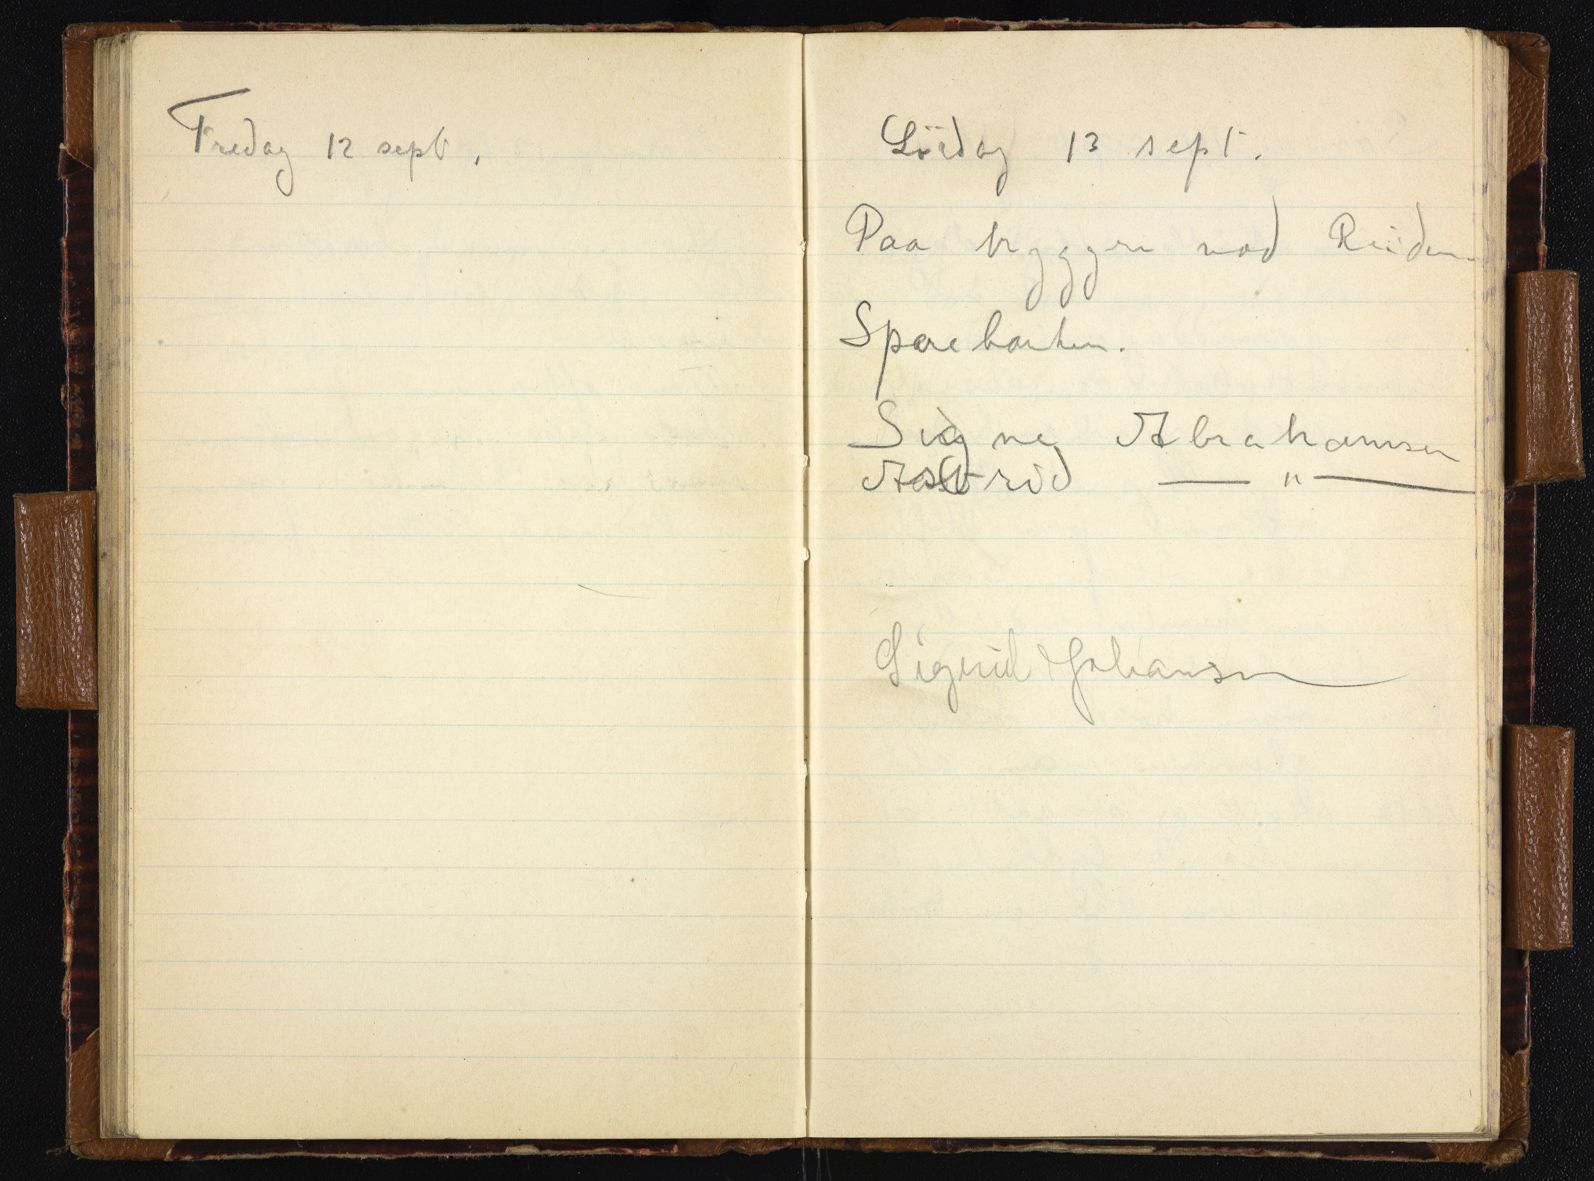 Fredag 12 sept.
Lördag 13 sept.
Paa bryggen ved
Sparebanken.
Signe Abrahamsen
Astrid — " —
Sigrid Johansen